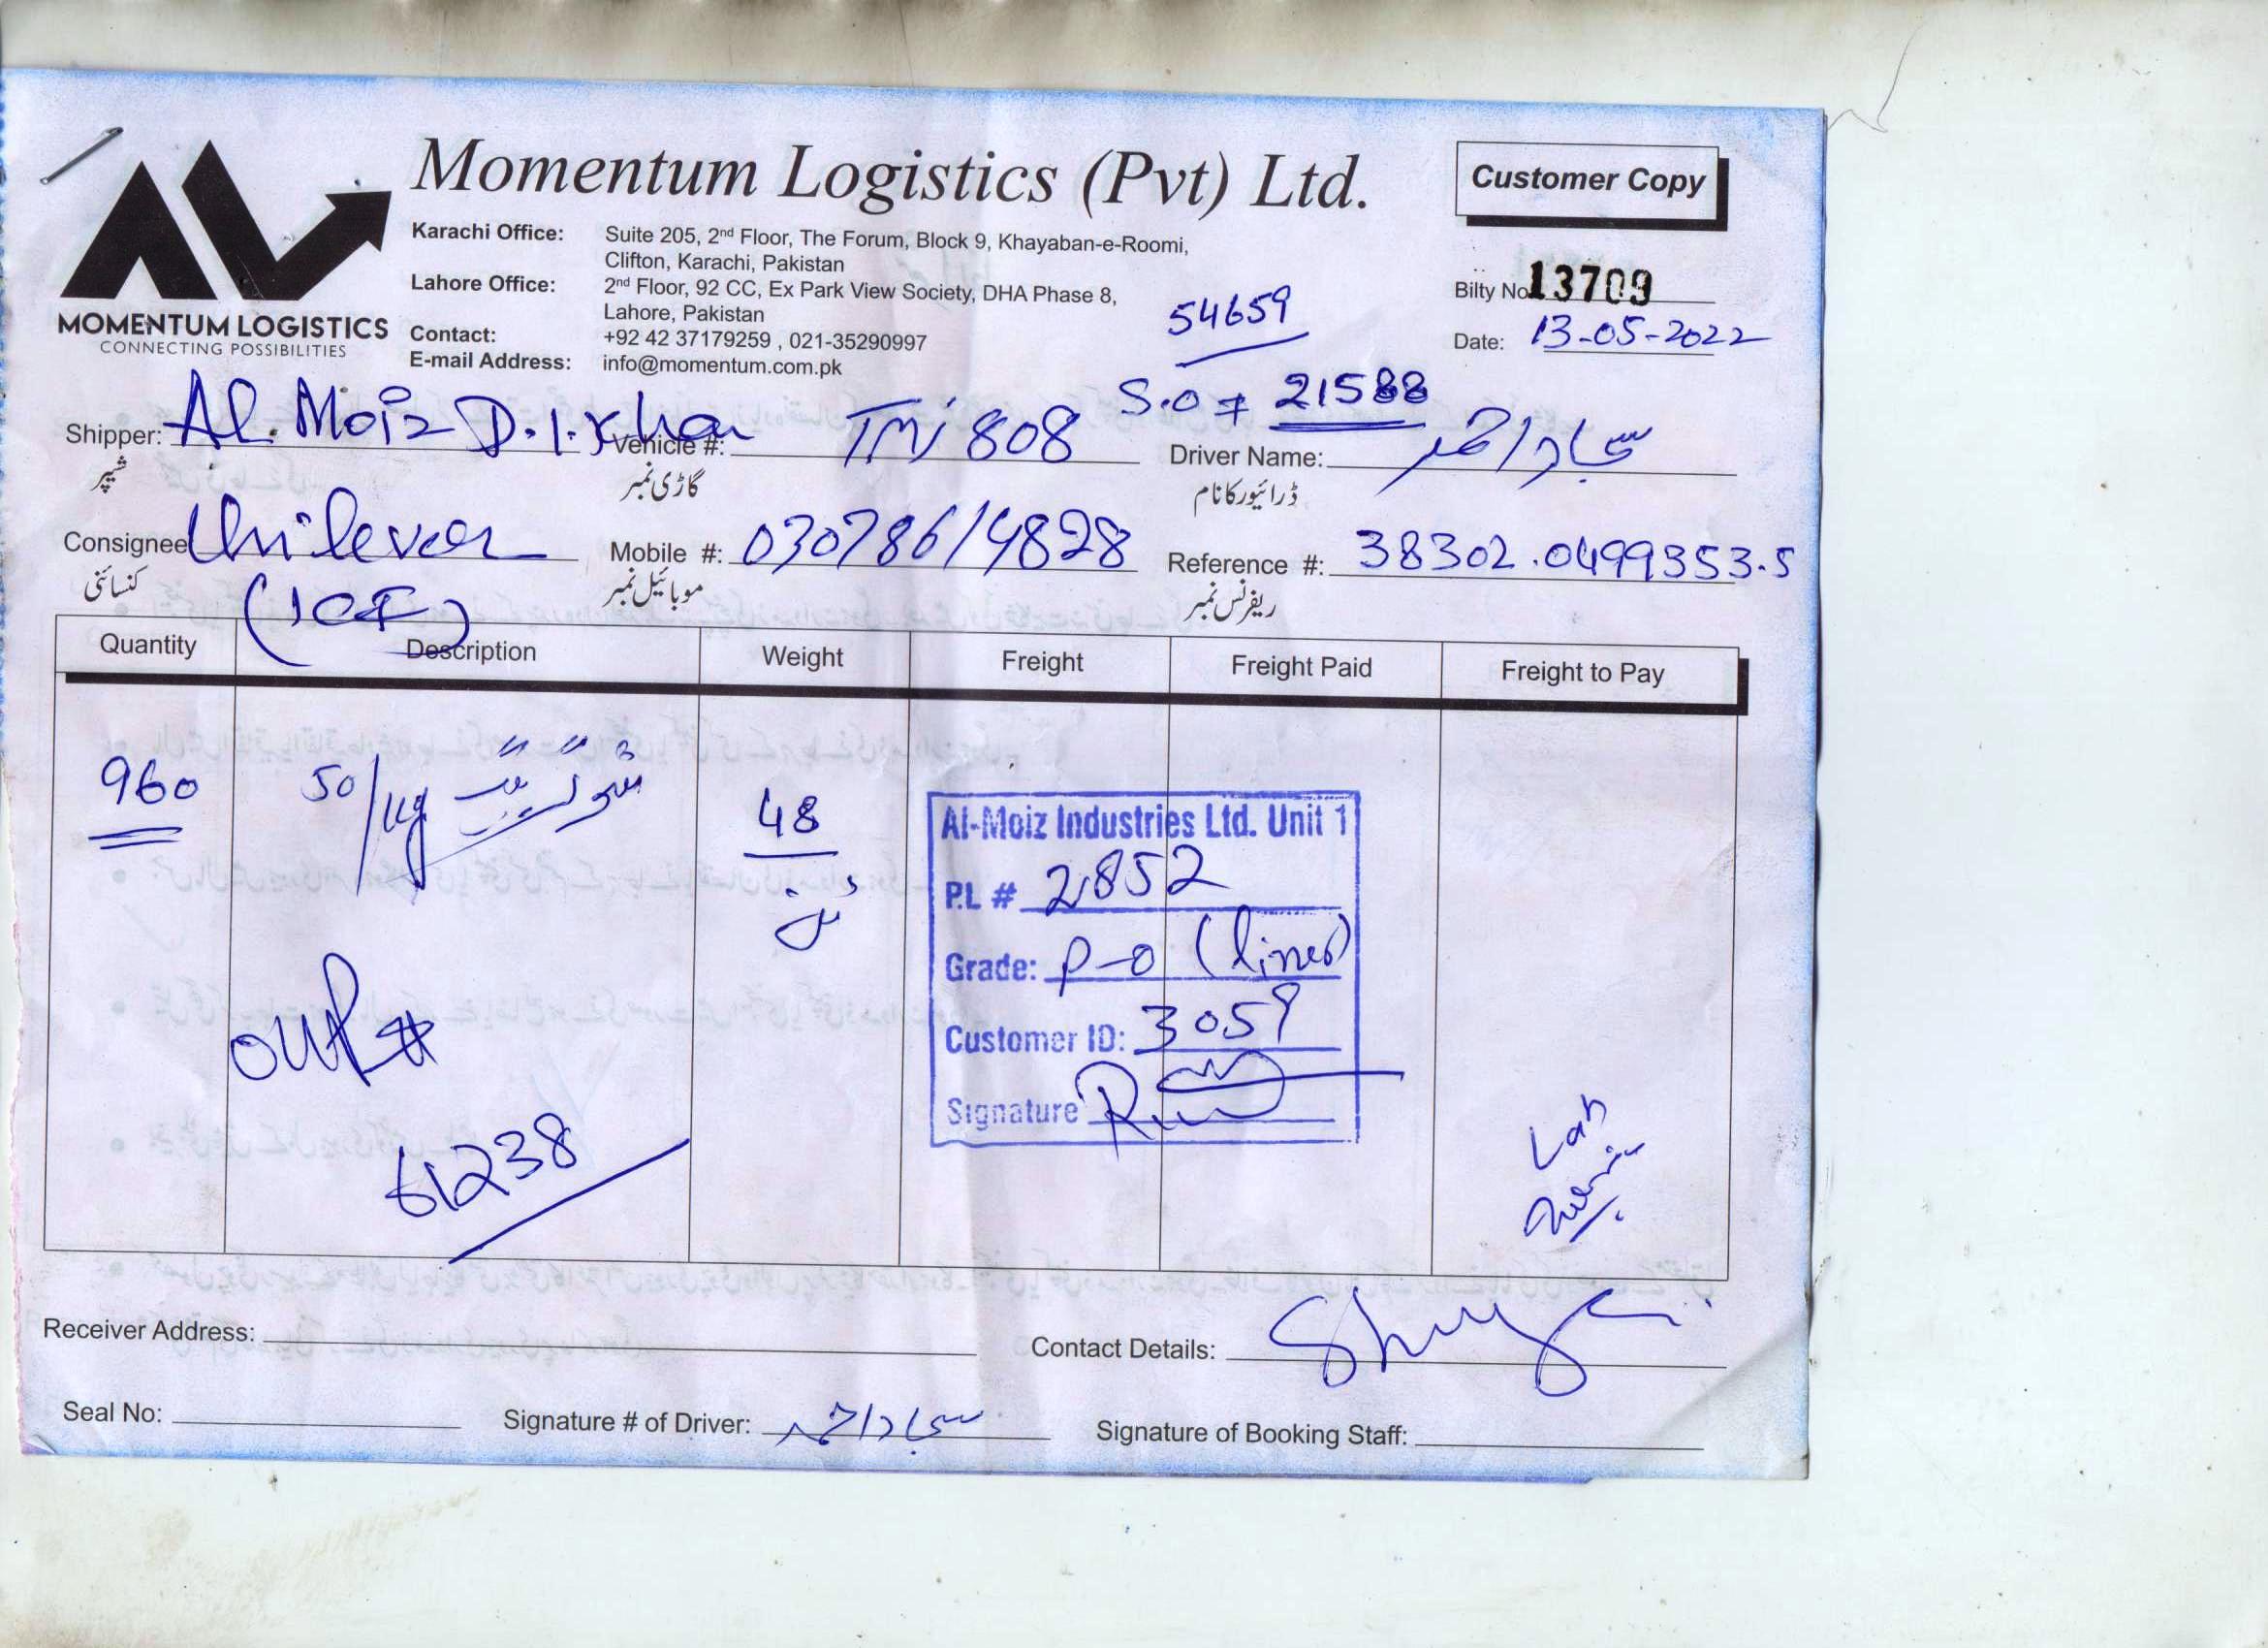 Momentum Logistics (Pvt) Ltd.
Customer Copy
MOMENTUM LOGISTICS
CONNECTING POSSIBILITIES
Karachi Office: Suite 205, 2nd Floor, The Forum, Block 9, Khayaban-e-Roomi,
Clifton, Karachi, Pakistan
Lahore Office: 2nd Floor, 92 CC, Ex Park View Society, DHA Phase 8,
Lahore, Pakistan
Contact: +92 42 37179259 , 021-35290997
E-mail Address: info@momentum.com.pk
54659
Bilty No 13709
Date: 13-05-2022
S.O # 21588
Shipper: Al.Moiz D.I.Khan Vehicle #: TMJ 808 Driver Name: سجاد احمد
شپپر گاڑی نمبر ڈرائیور کا نام
Consignee Unilever Mobile #: 03078614828 Reference #: 38302.0499353.5
کنسائنی موبائیل نمبر ریفرنس نمبر
(ICF)
Quantity Description Weight Freight Freight Paid Freight to Pay
960 50/kg 48
ٹن
Al-Moiz Industries Ltd. Unit 1
P.L # 2852
Grade: P-0 (liner)
Customer ID: 3059
Signature
61238
Receiver Address: Contact Details:
Seal No: Signature # of Driver: سجاد احمد Signature of Booking Staff: